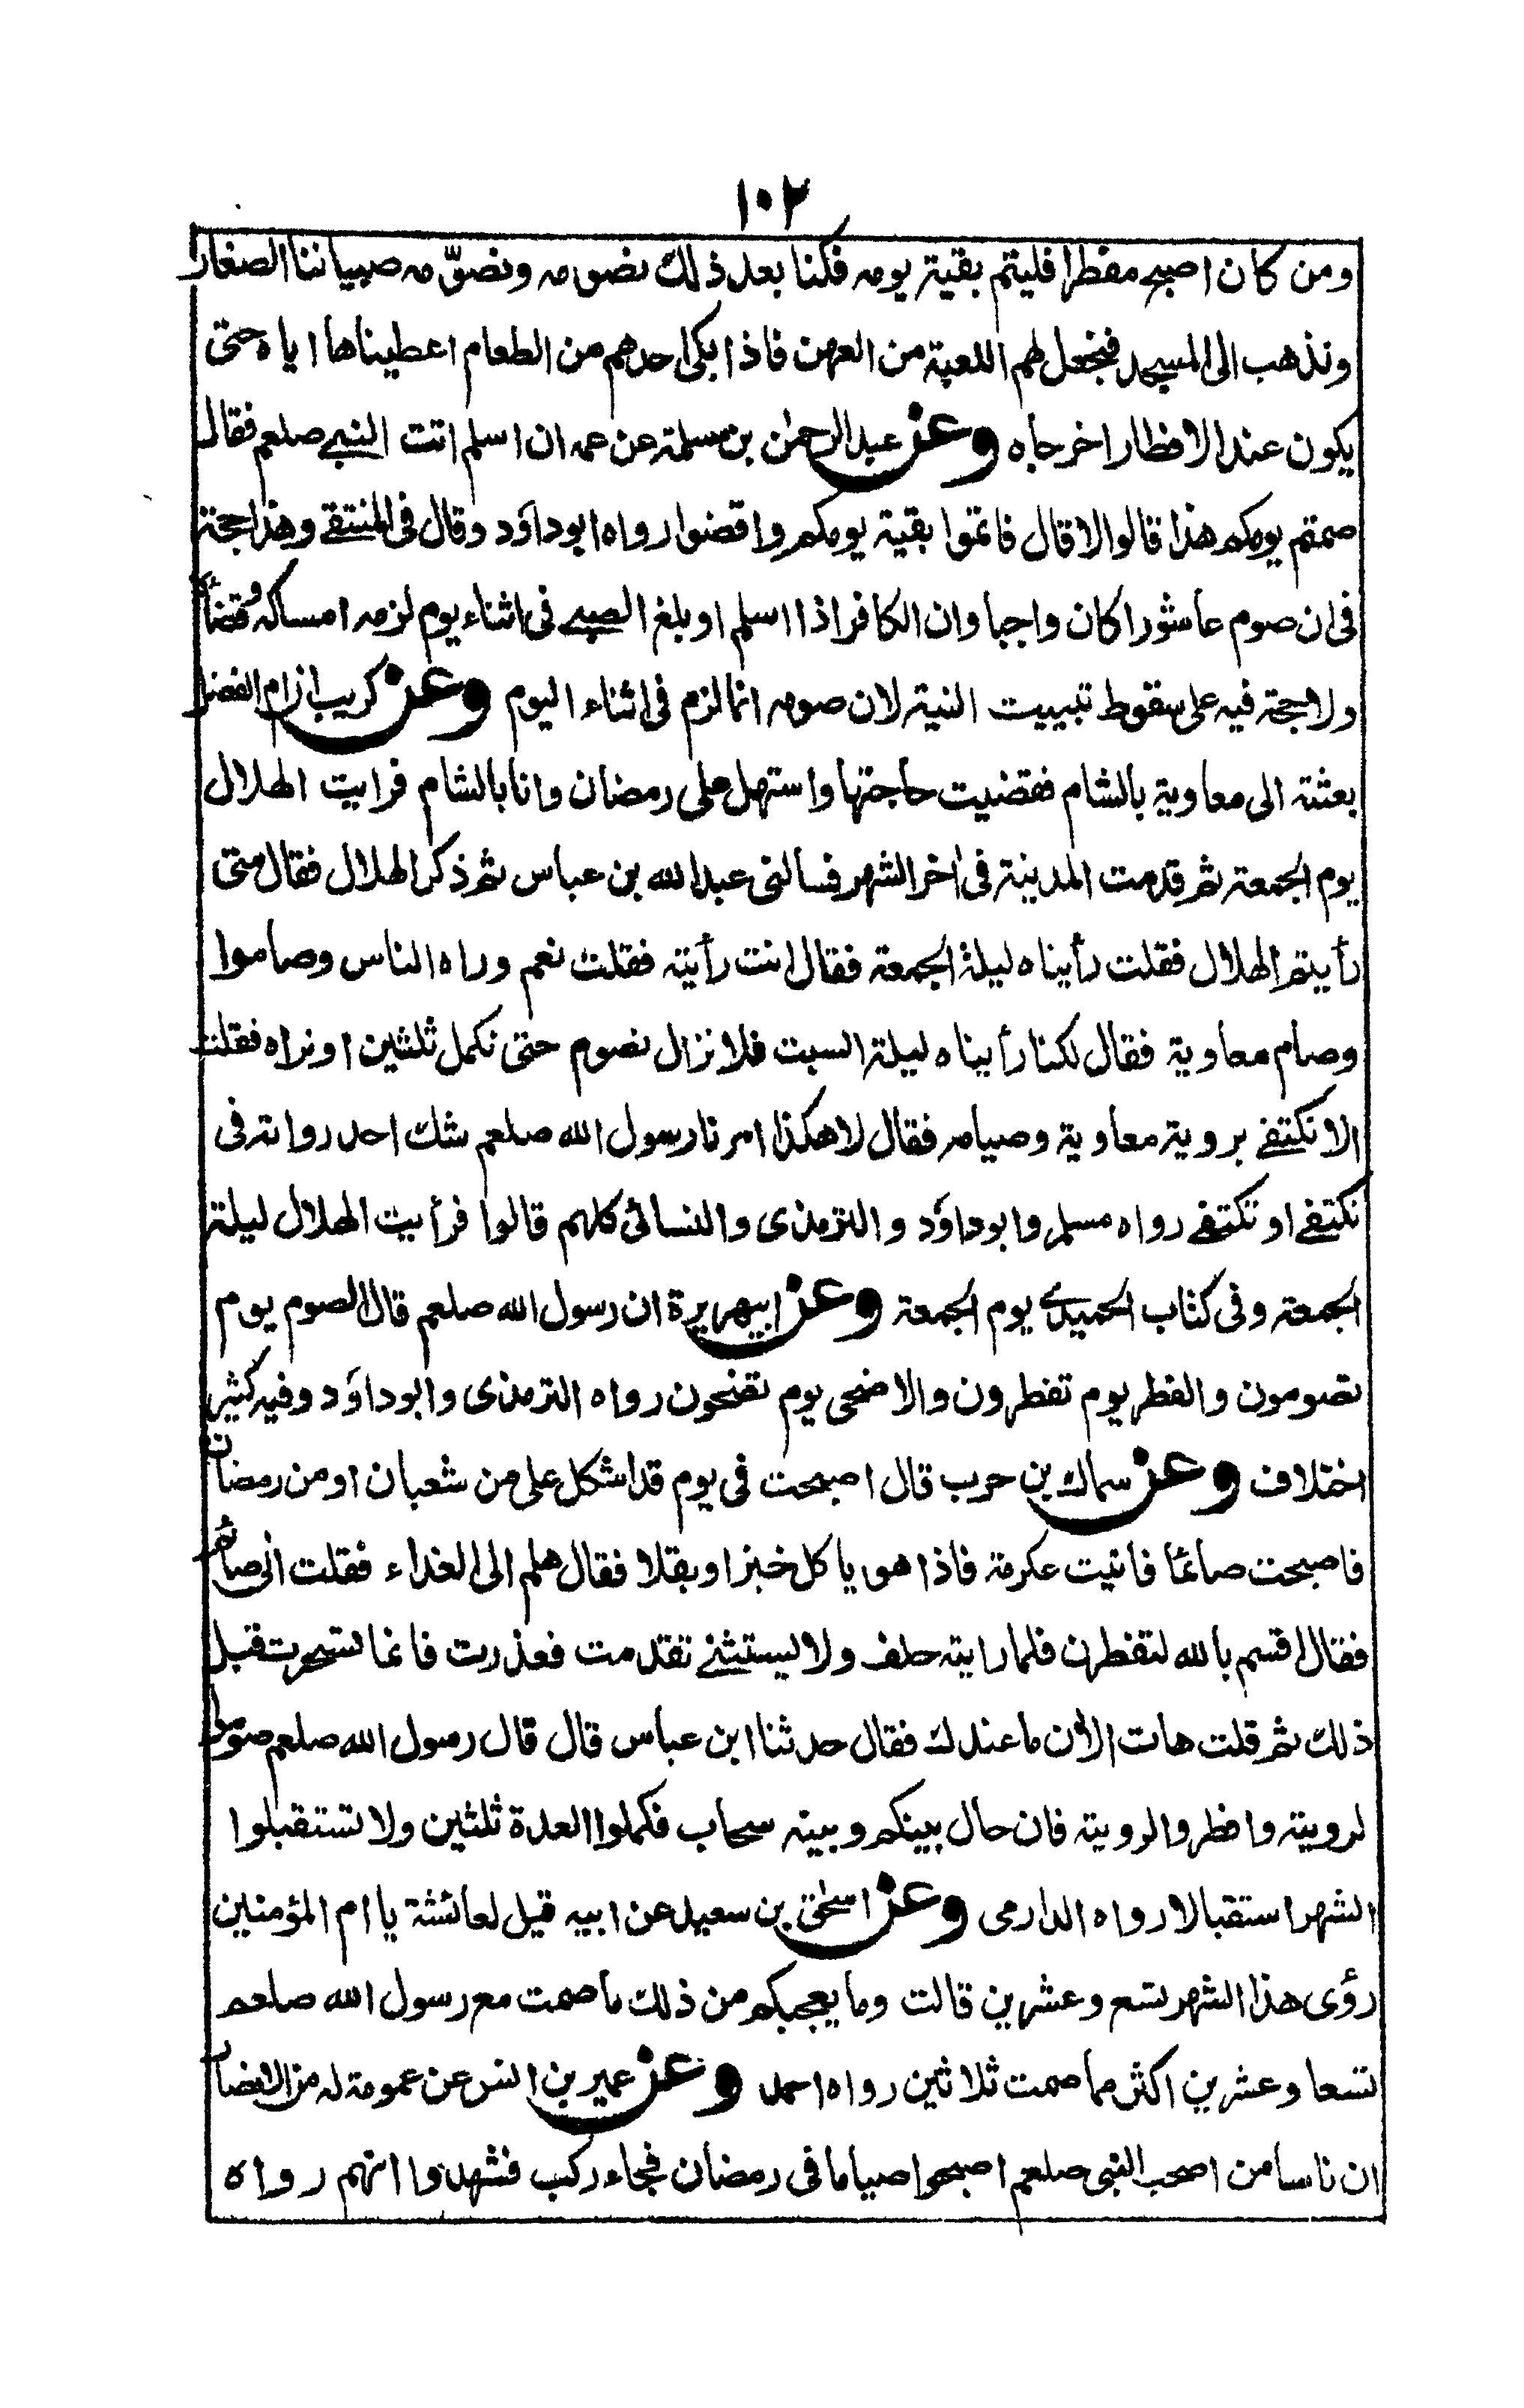 ١٠٢
ومن كان اصبح مفطرا فليتم بقية يومه فكنا بعد ذلك نصومه ونصوّمه صبياننا الصغار
ونذهب الى المسجد فنجعل لهم اللعبة من العهن فاذا بكى احدهم من الطعام اعطيناها اياه حتى
يكون عند الافطار اخرجاه وعن عبد الرحمٰن بن مسلمة عن عمه ان اسلم اتت النبي صلعم فقال
صمتم يومكم هذا قالوا لا قال فاتموا بقية يومكم واقضوا رواه ابوداؤد وقال فى المنتقى وهذا حجة
فى ان صوم عاشورا كان واجبا وان الكافر اذا اسلم او بلغ الصبي فى اثناء يوم لزمه امساكه وقضاؤه
ولا حجة فيه على سقوط تبييت النية لان صومه انما لزم فى اثناء اليوم وعن كريب ان ام الفضل
بعثته الى معاوية بالشام فقضيت حاجتها واستهل على رمضان وانا بالشام فرايت الهلال
يوم الجمعة ثم قدمت المدينة فى اٰخر الشهر فسالنى عبد الله بن عباس ثم ذكر الهلال فقال متى
رأيتم الهلال فقلت رأيناه ليلة الجمعة فقال انت رأيته فقلت نعم وراه الناس وصاموا
وصام معاوية فقال لكنا رأيناه ليلة السبت فلا نزال نصوم حتى نكمل ثلثين او نراه فقلت
الا نكتفي بروية معاوية وصيامه فقال لا هكذا امرنا رسول الله صلعم شك احد رواته فى
نكتفي او تكتفي رواه مسلم وابوداؤد والترمذى والنسائى كلهم قالوا فرأيت الهلال ليلة
الجمعة وفى كتاب الحميدى يوم الجمعة وعن ابيهريرة ان رسول الله صلعم قال الصوم يوم
تصومون والفطر يوم تفطرون والاضحى يوم تضحون رواه الترمذى وابوداؤد وفيه كثير
اختلاف وعن سماك بن حرب قال اصبحت فى يوم قد اشكل على من شعبان او من رمضان
فاصبحت صائما فاتيت عكرمة فاذا هو ياكل خبزا وبقلا فقال هلم الى الغداء فقلت انى صائم
فقال اقسم بالله لتفطرن فلما رايته حلف ولا يستثني تقدمت فعذرت فانما تسحرت قبل
ذلك ثم قلت هات الاٰن ما عندك فقال حدثنا ابن عباس قال قال رسول الله صلعم صوموا
لرويته وافطروا لرويته فان حال بينكم وبينه سحاب فكملوا العدة ثلثين ولا تستقبلوا
الشهر استقبالا رواه الدارمى وعن اسحٰق بن سعيد عن ابيه قيل لعائشة يا ام المؤمنين
رؤى هذا الشهر تسع وعشرين قالت وما يعجبكم من ذلك ما صمت مع رسول الله صلعم
تسعا وعشرين اكثر مما صمت ثلاثين رواه احمد وعن عمير بن انس عن عمومة له من الانصار
ان ناسا من اصحب النبى صلعم اصبحوا صياما فى رمضان فجاء ركب فشهدوا انهم رواه